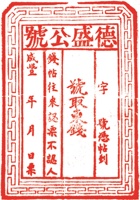 號公盛德
字
號憑帖到
號取來錢
錢帖往來認票不認人
咸豐 年 月 日票